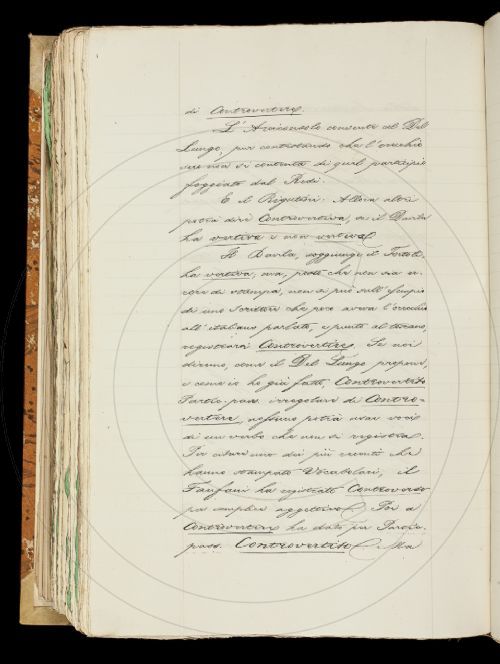 di Controvertere.
L'Arciconsolo consente col Del
Lungo, pur contrastando che l'orecchio
suo non si contenta di quel participio
foggiato dal Redi.
E il Rigutini: Allora altri
potrà dire Controvertiva, se il Barla
ha vertiva e non verteva
Il Barla, soggiunge il Tortoli,
ha vertiva, ma, posto che non sia er-
rore di stampa, non si può sull'esempio
di uno Scrittore che poco aveva l'orecchio
all'italiano parlato, e punto al toscano,
registrarsi Controvertire. Se noi
diremo, come il Del Lungo propone,
e come io ho già fatto, Controvertito
Partic. pass. irregolare di Contro-
vertere, nessuno potrà usar voci
di un verbo che non si registra.
Per citare uno dei più recenti che
hanno stampato Vocabolari, il
Fanfani ha registrato Controverso
per semplice aggettivo. Poi a
Controvertere ha dato per Partic.
pass. Controvertito. Ma